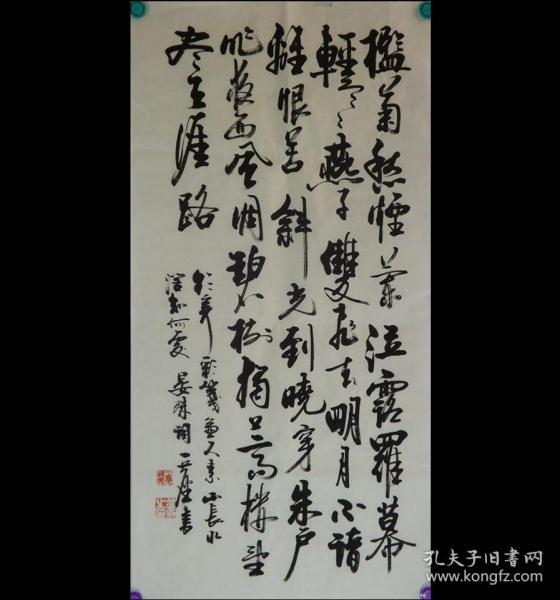 檻菊愁煙蘭泣露羅幕
輕寒燕子雙飛去明月不諳
離恨苦斜光到曉穿朱戶
昨夜西風凋碧樹獨上高樓望
盡天涯路
欲寄彩箋兼尺素山長水
闊知何處 晏殊詞 書
孔夫子旧书网
www.kongfz.com